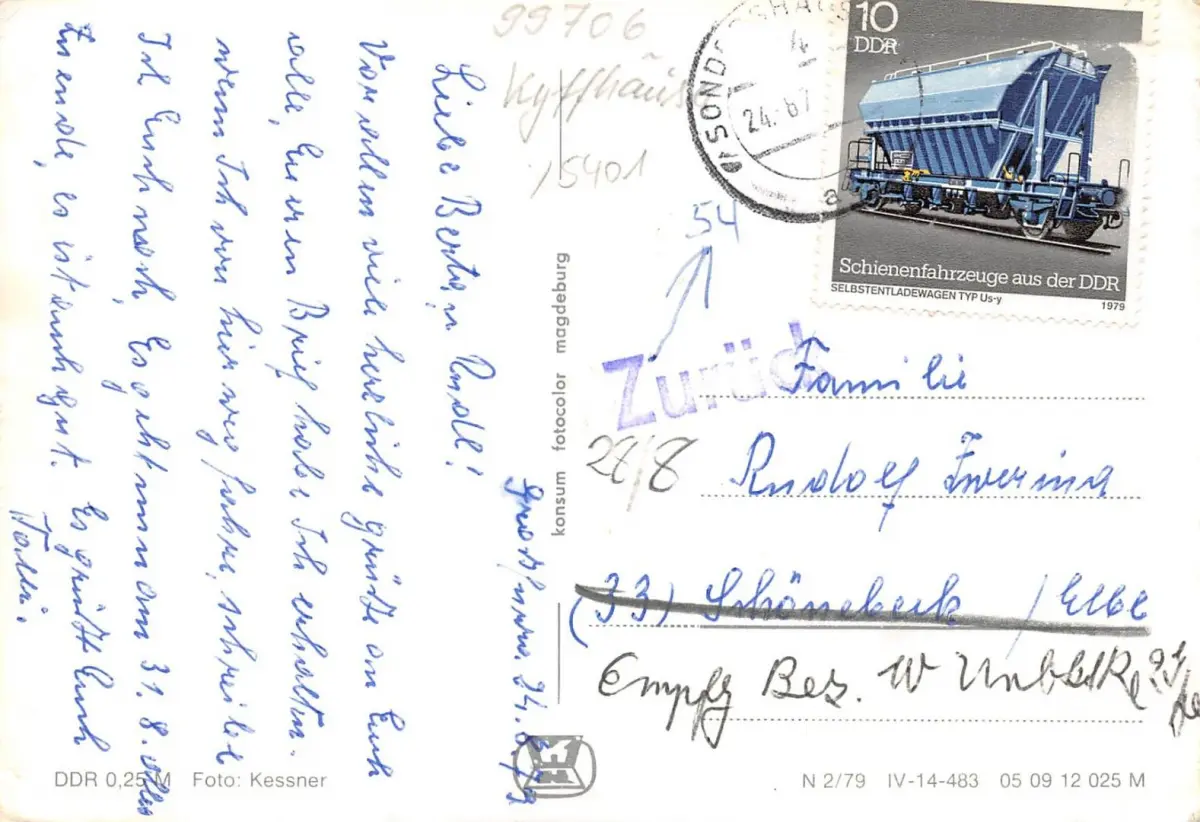 Großfurra. 24.8.79
Liebe Berta, u Rudl!
Vor allem viele herzliche grüße an Euch
alle, Euern Brief habe Ich erhalten.
wenn Ich von hier weg fahre, schreibe
Ich Euch noch, Es geht nun am 31. 8. alles
zu ende, es ist auch gut. Es grüßt Euch
99706
Kyffhäus
15401
SONDERSHAUS
24.
a
10
DDR
Schienenfahrzeuge aus der DDR
SELBSTENTLADEWAGEN TYP Us-y
1979
54
Zurück
28/8
Familie
Rudolf Zwerina
(33) Schönebeck / Elbe
Empfg Bez. W
konsum fotocolor magdeburg
DDR 0,25 M Foto: Kessner
N 2/79 IV-14-483 05 09 12 025 M